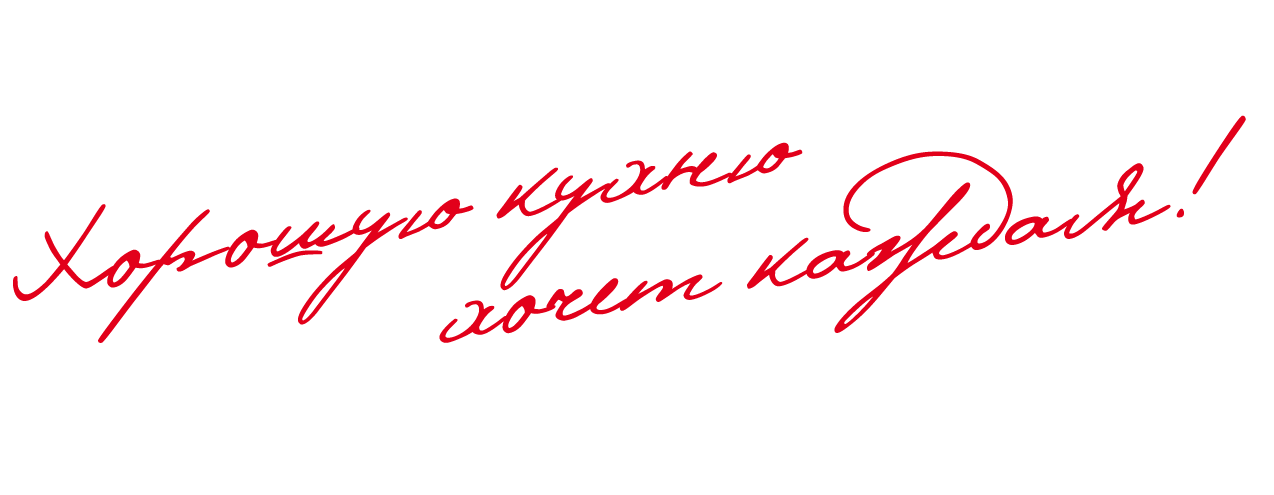 Хорошую кухню
хочет каждый!